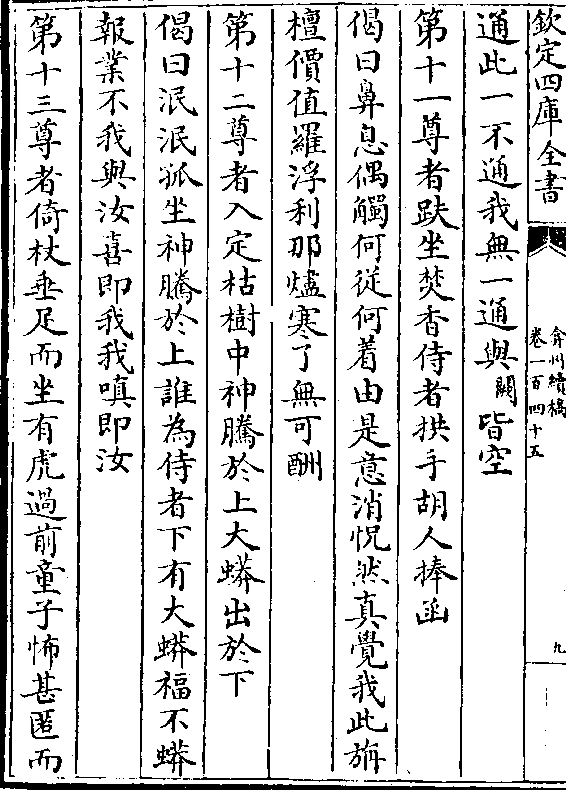 欽定四庫全書
弇州續稿
卷一百四十五
九
通此一不通我無一通與闕皆空
第十一尊者趺坐焚香侍者拱手胡人捧函
偈曰鼻息偶觸何從何着由是意消怳然真覺我此旃
檀價值羅浮刹那爐寒了無可酬
第十二尊者入定枯樹中神騰於上大蟒出於下
偈曰泯泯孤坐神騰於上誰為侍者下有大蟒福不蟒
報業不我與汝喜即我我嗔即汝
第十三尊者倚杖垂足而坐有虎過前童子怖甚匿而